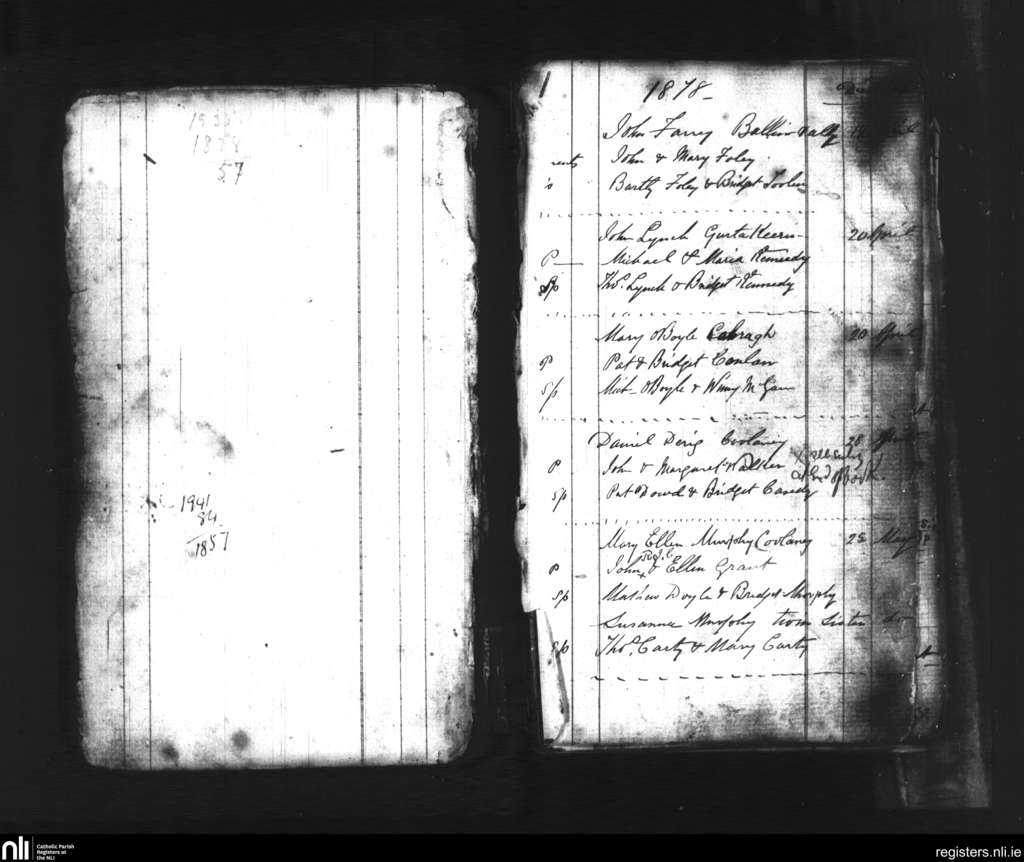 1878
57
1941
84
1857
1878
John Farry
rents John & Mary Foley
Bartly Foley & Bridget
John Lynch Gurtakeeran 20 April
P Michael & Maria Kennedy
Sp Thos. Lynch & Bridget Kennedy
Mary OBoyle Cabragh 20 April
P Pat & Bridget Conlan
Sp Mich OBoyle & Winny McGan
Daniel Coolaney 28 April
P John & Margaret Walker
Sp Pat Dowd & Bridget
Mary Ellen Murphy Coolaney 28 May
P John & Ellen Grant
Sp Mathew Doyle & Bridget Murphy
Susanna Murphy twin sister do
Sp Thos. Carty & Mary Carty
nli Catholic Parish
Registers at
the NLI
registers.nli.ie